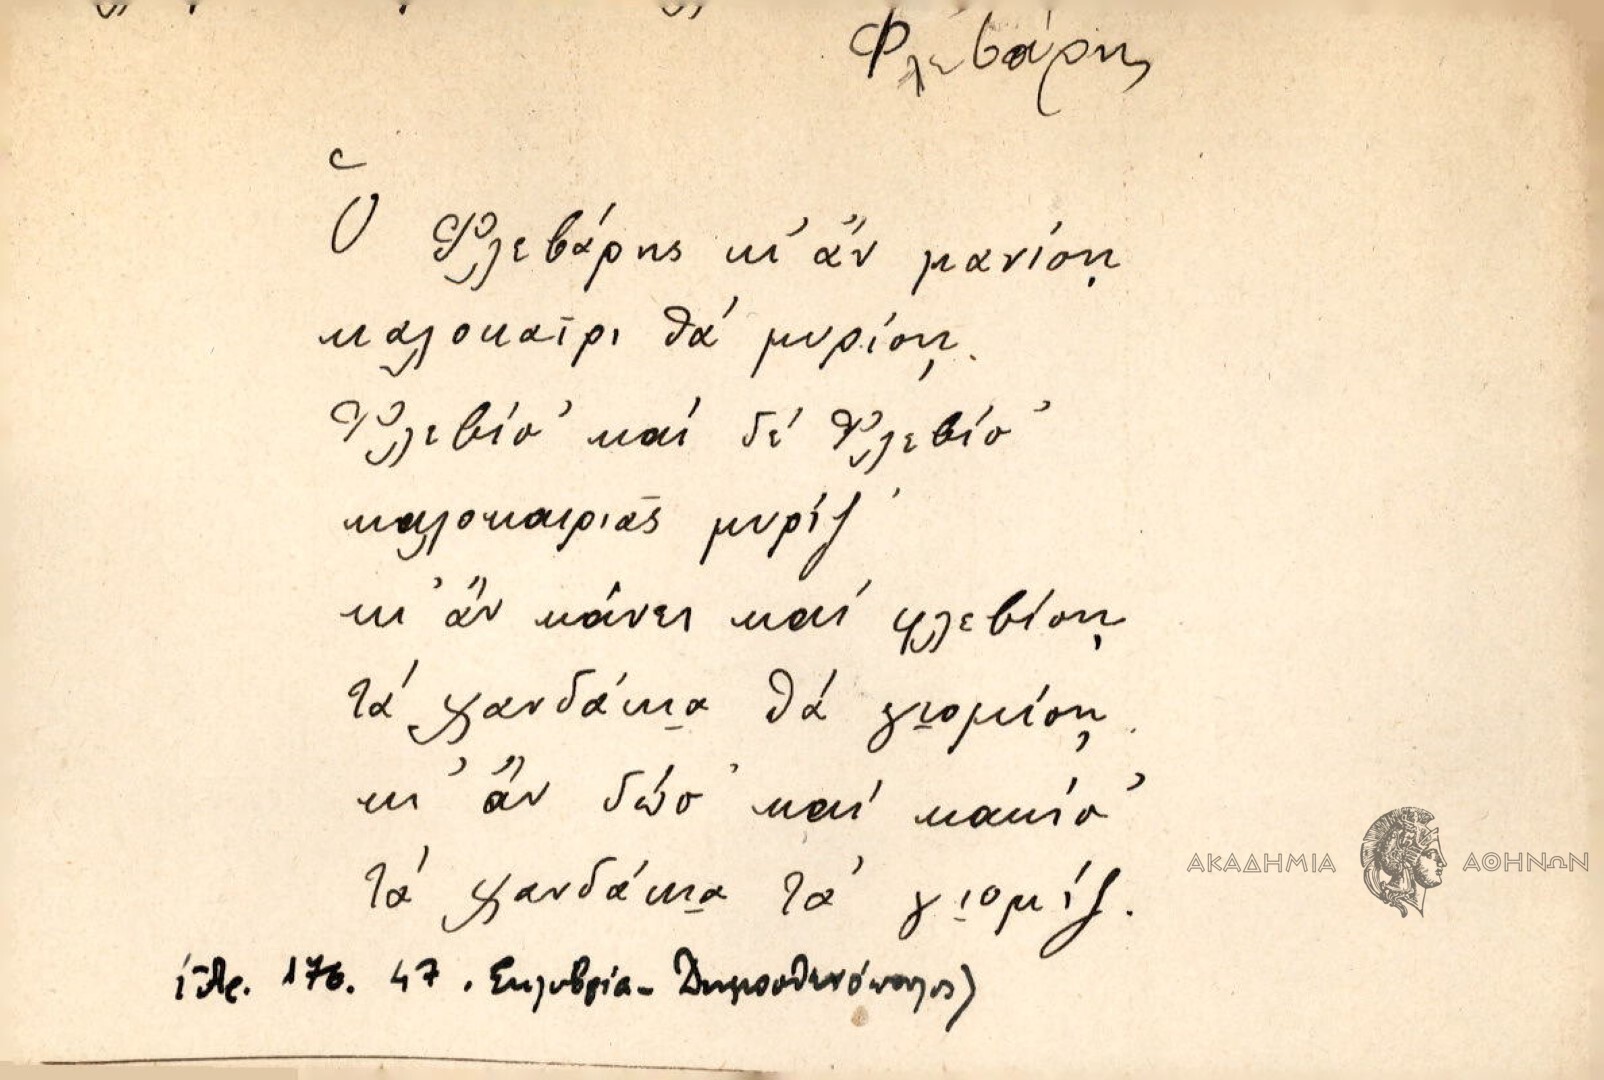 Φλεβάρης
Ὁ Φλεβάρης κι' ἄν μανίσῃ
καλοκαῖρι θά μυρίσῃ.
Φλεβίσ' καί δέ Φλεβίσ'
καλοκαιριᾶς μυρίζ'
κι' ἄν κάνει καί φλεβίσῃ
τά χανδάκια θά γιομίσῃ.
κι' ἄν δώσ' καί κακίσ'
τά χανδάκια τά γιομίζ.
(Ἀρ. 176. 47. Σηλυβρία - Δημοσθενόπουλος)
ΑΚΑΔΗΜΙΑ ΑΘΗΝΩΝ